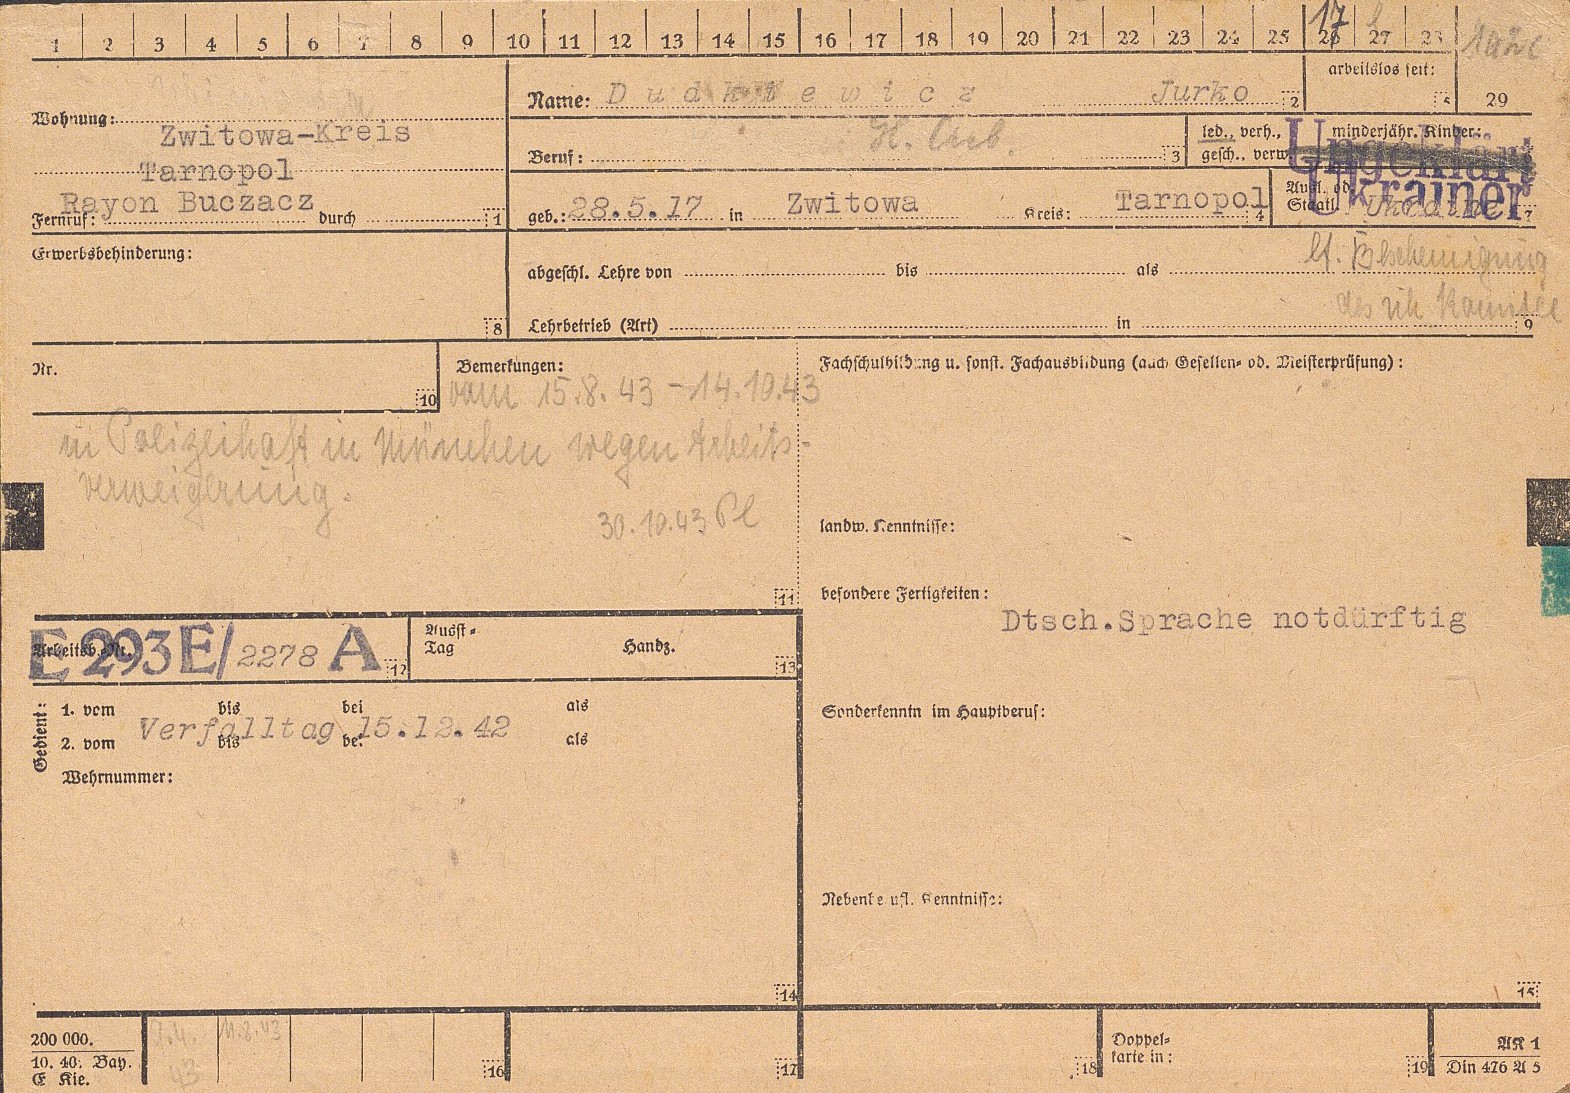 1 2 3 4 5 6 7 8 9 10 11 12 13 14 15 16 17 18 19 20 21 22 23 24 25 26 27 28
17
Wohnung:
Zwitowa-Kreis
Tarnopol
Rayon Buczacz
Fernruf: durch 1
Name: Dudkiewicz Jurko 2
arbeitslos seit: 5
29
Beruf: H. Arb. 3
led., verh.,
gesch., verw.
minderjähr. Kinder:
Ungeklärt
Ukrainer
geb.: 28.5.17 in Zwitowa Kreis: Tarnopol 4
Ausl. od.
Staatl. Ukraine 7
lt. Bescheinigung
des ukr. Komitee
Erwerbsbehinderung:
8
abgeschl. Lehre von bis als
Lehrbetrieb (Art) in 9
Nr.
10
Bemerkungen:
vom 15.8.43 - 14.10.43
in Polizeihaft in München wegen Arbeits-
verweigerung.
30.10.43 Pl
11
Fachschulbildung u. sonst. Fachausbildung (auch Gesellen- od. Meisterprüfung):
landw. Kenntnisse:
besondere Fertigkeiten:
Dtsch.Sprache notdürftig
Arbeitsb.Nr.
E 293E/2278 A 12
Ausst-
Tag
Handz.
13
Gedient:
1. vom bis bei als
Verfalltag 15.12.42
2. vom bis bei als
Wehrnummer:
14
Sonderkenntn im Hauptberuf:
Nebenberufl. Kenntnisse:
15
200 000.
10. 40. Bay.
E Kie.
1.4.
43
11.8.43
16
17
18
Doppel-
karte in:
19
AK 1
Din 476 A 5